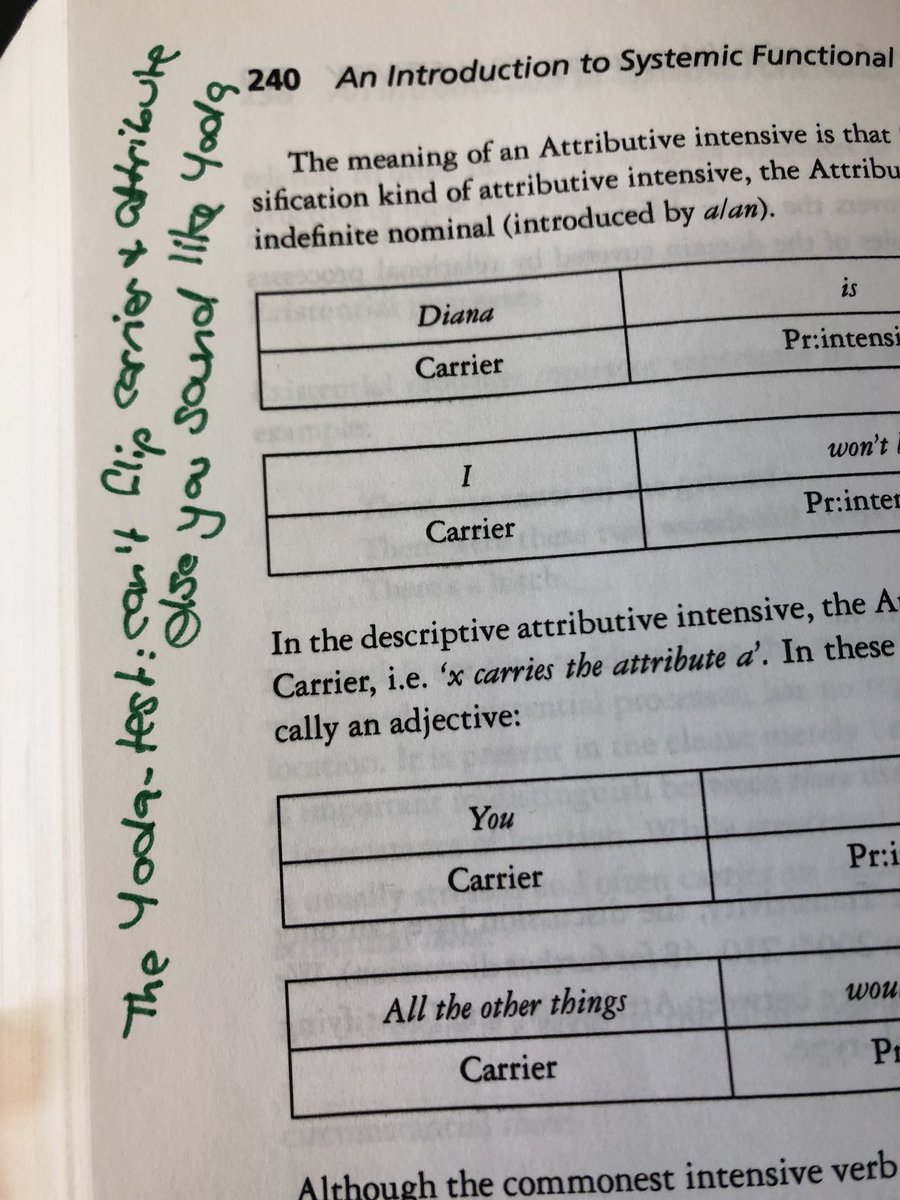 The Yoda-test: can't flip carrier + attribute
else you sound like Yoda
240 An Introduction to Systemic Functional
The meaning of an Attributive intensive is that
sification kind of attributive intensive, the Attribu
indefinite nominal (introduced by a/an).
Diana is
Carrier Pr:intensi
I won't
Carrier Pr:inten
In the descriptive attributive intensive, the A
Carrier, i.e. 'x carries the attribute a'. In these
cally an adjective:
You
Carrier Pr:i
All the other things wou
Carrier Pr
Although the commonest intensive verb